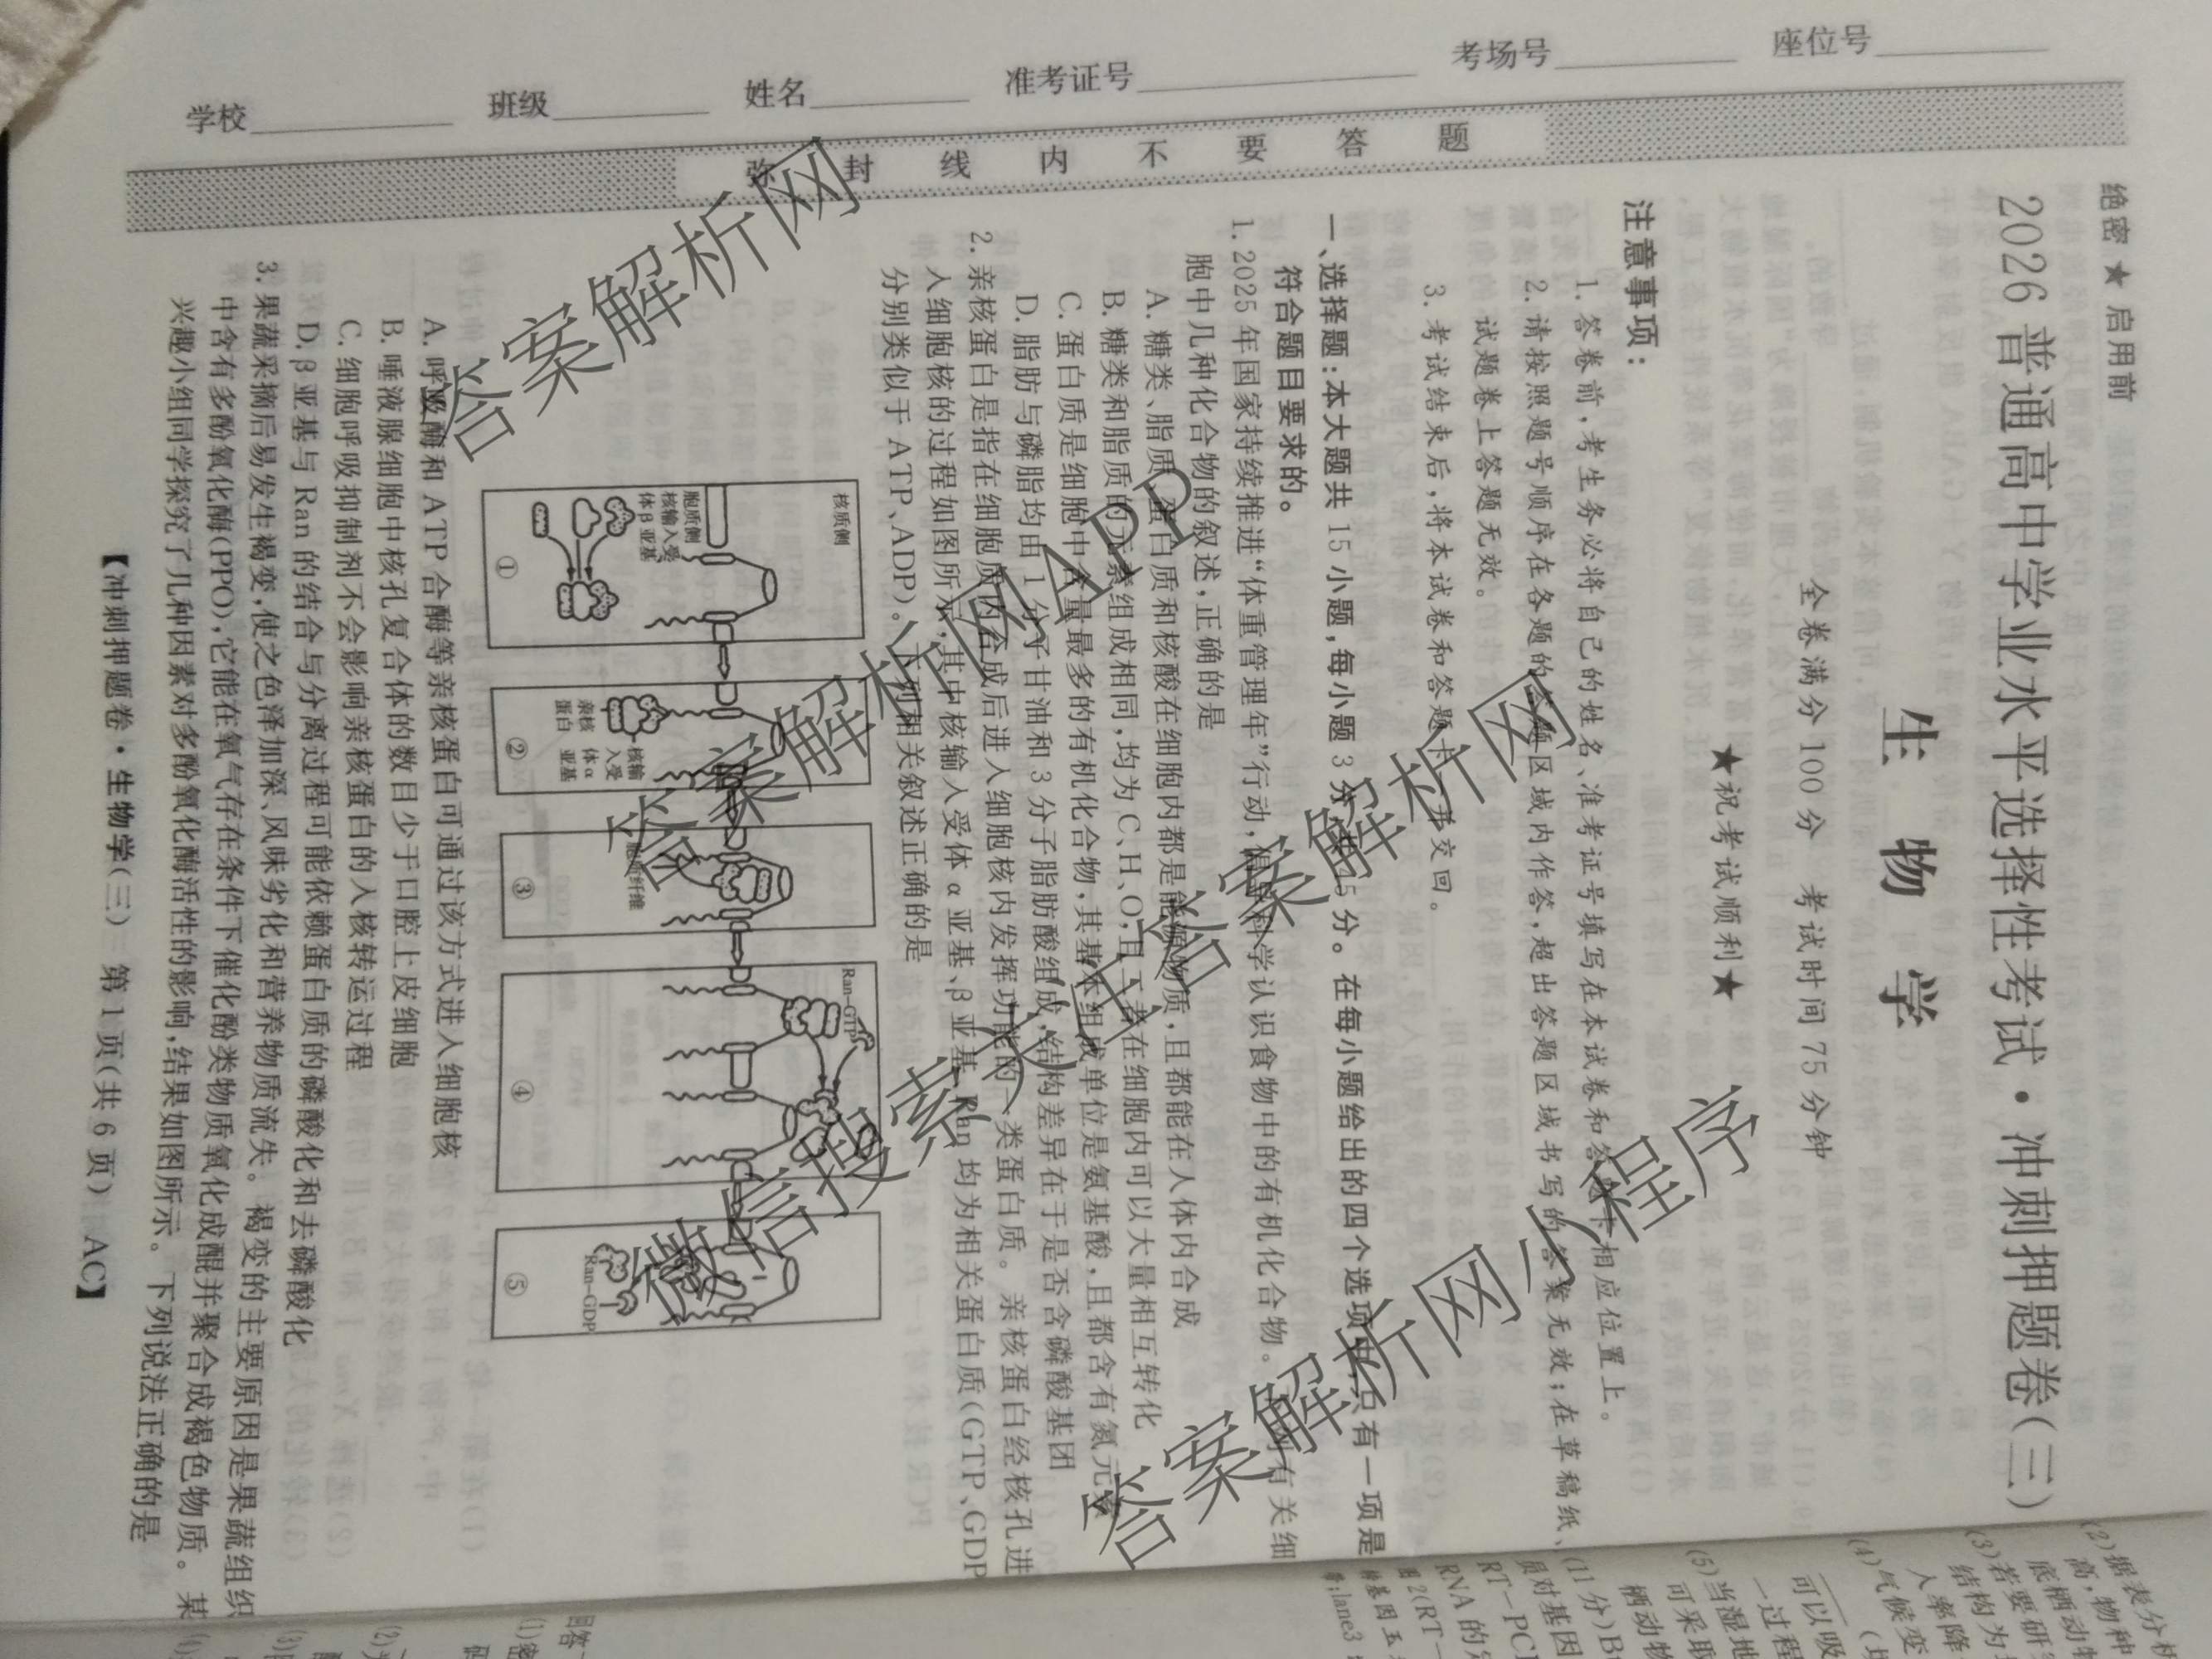 学校 班级 姓名 准考证号 考场号 座位号
弥封线内不要答题
绝密★启用前
2026普通高中学业水平选择性考试·冲刺押题卷(三)
生 物 学
全卷满分100分 考试时间75分钟
★祝考试顺利★
注意事项:
1. 答卷前,考生务必将自己的姓名、准考证号填写在本试卷和答题卡相应位置上。
2. 请按照题号顺序在各题的答题区域内作答,超出答题区域书写的答案无效;在草稿纸、
试题卷上答题无效。
3. 考试结束后,将本试卷和答题卡一并交回。
一、选择题:本大题共15小题,每小题3分,共45分。在每小题给出的四个选项中,只有一项是
符合题目要求的。
1. 2025年国家持续推进“体重管理年”行动,倡导科学认识食物中的有机化合物。下列有关细
胞中几种化合物的叙述,正确的是
A. 糖类、脂质、蛋白质和核酸在细胞内都是能源物质,且都能在人体内合成
B. 糖类和脂质的元素组成相同,均为C、H、O,且二者在细胞内可以大量相互转化
C. 蛋白质是细胞中含量最多的有机化合物,其基本组成单位是氨基酸,且都含有氮元素
D. 脂肪与磷脂均由1分子甘油和3分子脂肪酸组成,结构差异在于是否含磷酸基团
2. 亲核蛋白是指在细胞质内合成后进入细胞核内发挥功能的一类蛋白质。亲核蛋白经核孔进
入细胞核的过程如图所示,其中核输入受体α亚基、β亚基、Ran均为相关蛋白质(GTP、GDP
分别类似于ATP、ADP)。下列相关叙述正确的是
核质侧
胞质侧
核输入受
体β亚基
①
亲核
蛋白
核输
入受
体α
亚基
②
胞质纤维
③
Ran-GTP
④
Ran-GDP
⑤
A. 呼吸酶和ATP合酶等亲核蛋白可通过该方式进入细胞核
B. 唾液腺细胞中核孔复合体的数目少于口腔上皮细胞
C. 细胞呼吸抑制剂不会影响亲核蛋白的入核转运过程
D. β亚基与Ran的结合与分离过程可能依赖蛋白质的磷酸化和去磷酸化
3. 果蔬采摘后易发生褐变,使之色泽加深、风味劣化和营养物质流失。褐变的主要原因是果蔬组织
中含有多酚氧化酶(PPO),它能在氧气存在条件下催化酚类物质氧化成醌并聚合成褐色物质。某
兴趣小组同学探究了几种因素对多酚氧化酶活性的影响,结果如图所示。下列说法正确的是
【冲刺押题卷·生物学(三) 第1页(共6页) AC】
答案解析网
答案解析网APP
答案解析网
微信搜索关注答案解析网
答案解析网小程序
(2)据表分析
高,物种
底栖动物
(3)若要研
结构为
入率降
(4)气候变
可以吸
一过程
(5)当湿地
可采取
栖动物
(11分)B
员对基因
RT-PCR
RNA的
图2(RT-